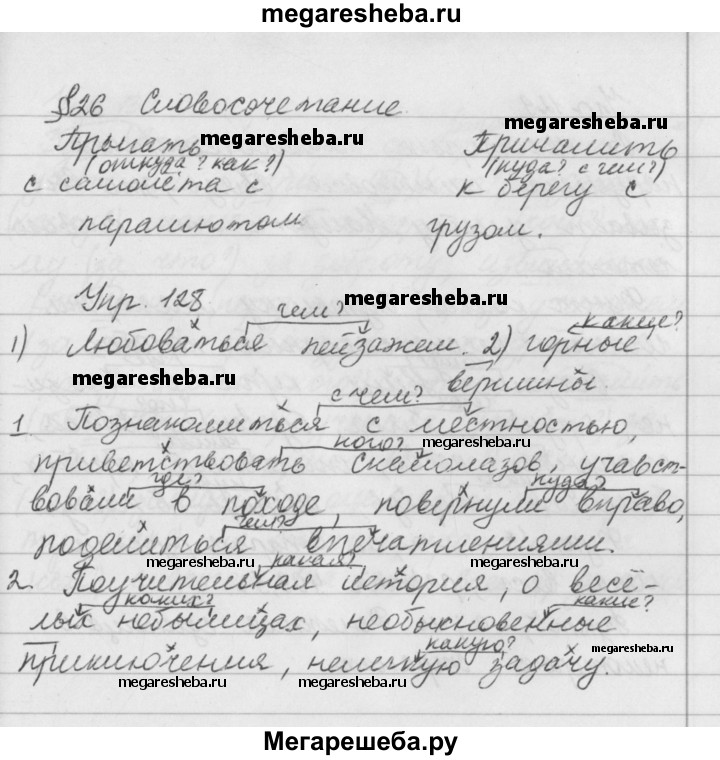 megaresheba.ru
§26 Словосочетание.
Прыгать megaresheba.ru Причалить
(откуда? как?) (куда? с чем?)
с самолёта с к берегу с
парашютом грузом.
Упр. 128 чем? megaresheba.ru какие?
1) Любоваться пейзажем. 2) горные
megaresheba.ru с чем? вершины.
1 Познакомиться с местностью,
кого? megaresheba.ru
приветствовать скалолазов, участ-
где? куда?
вовали в походе, повернули вправо,
чем?
поделиться впечатлениями.
megaresheba.ru какая? megaresheba.ru
2. Поучительная история, о весё-
каких? какие?
лых небылицах, необыкновенные
megaresheba.ru какую? megaresheba.ru
приключения, нелегкую задачу.
megaresheba.ru megaresheba.ru megaresheba.ru
Мегарешеба.ру